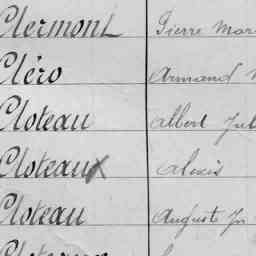 Clermont Pierre
Cléro Armand
Cloteau Albert
Cloteaux Alexis
Cloteau Auguste